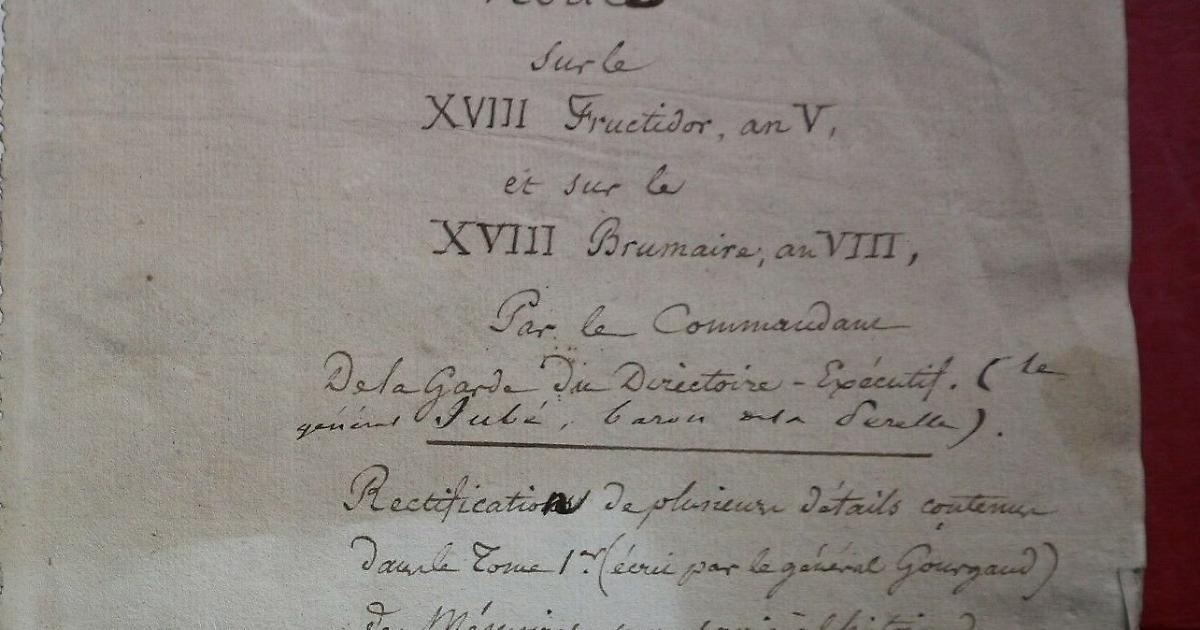 sur le
XVIII Fructidor, an V,
et sur le
XVIII Brumaire, an VIII,
Par le Commandant
De la Garde du Directoire - Exécutif. (le
général Jubé, baron de la Perelle).
Rectifications de plusieurs détails contenus
dans le Tome 1er (écrit par le général Gourgaud)
des Mémoires pour servir à l'histoire